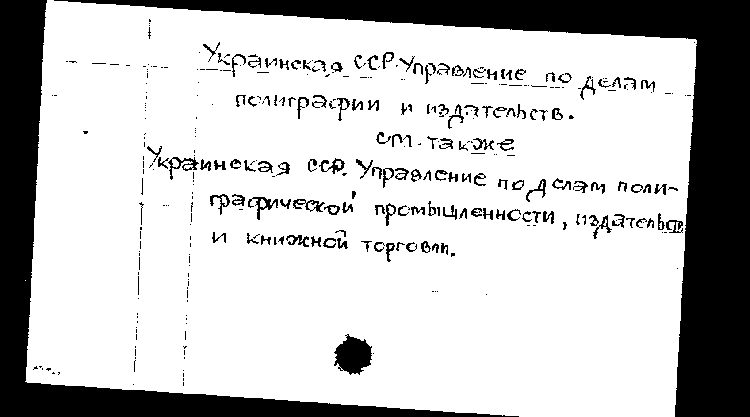 Украинская ССР. Управление по делам
полиграфии и издательств.
см. также
Украинская ССР. Управление по делам поли-
графической промышленности, издательств
и книжной торговли.